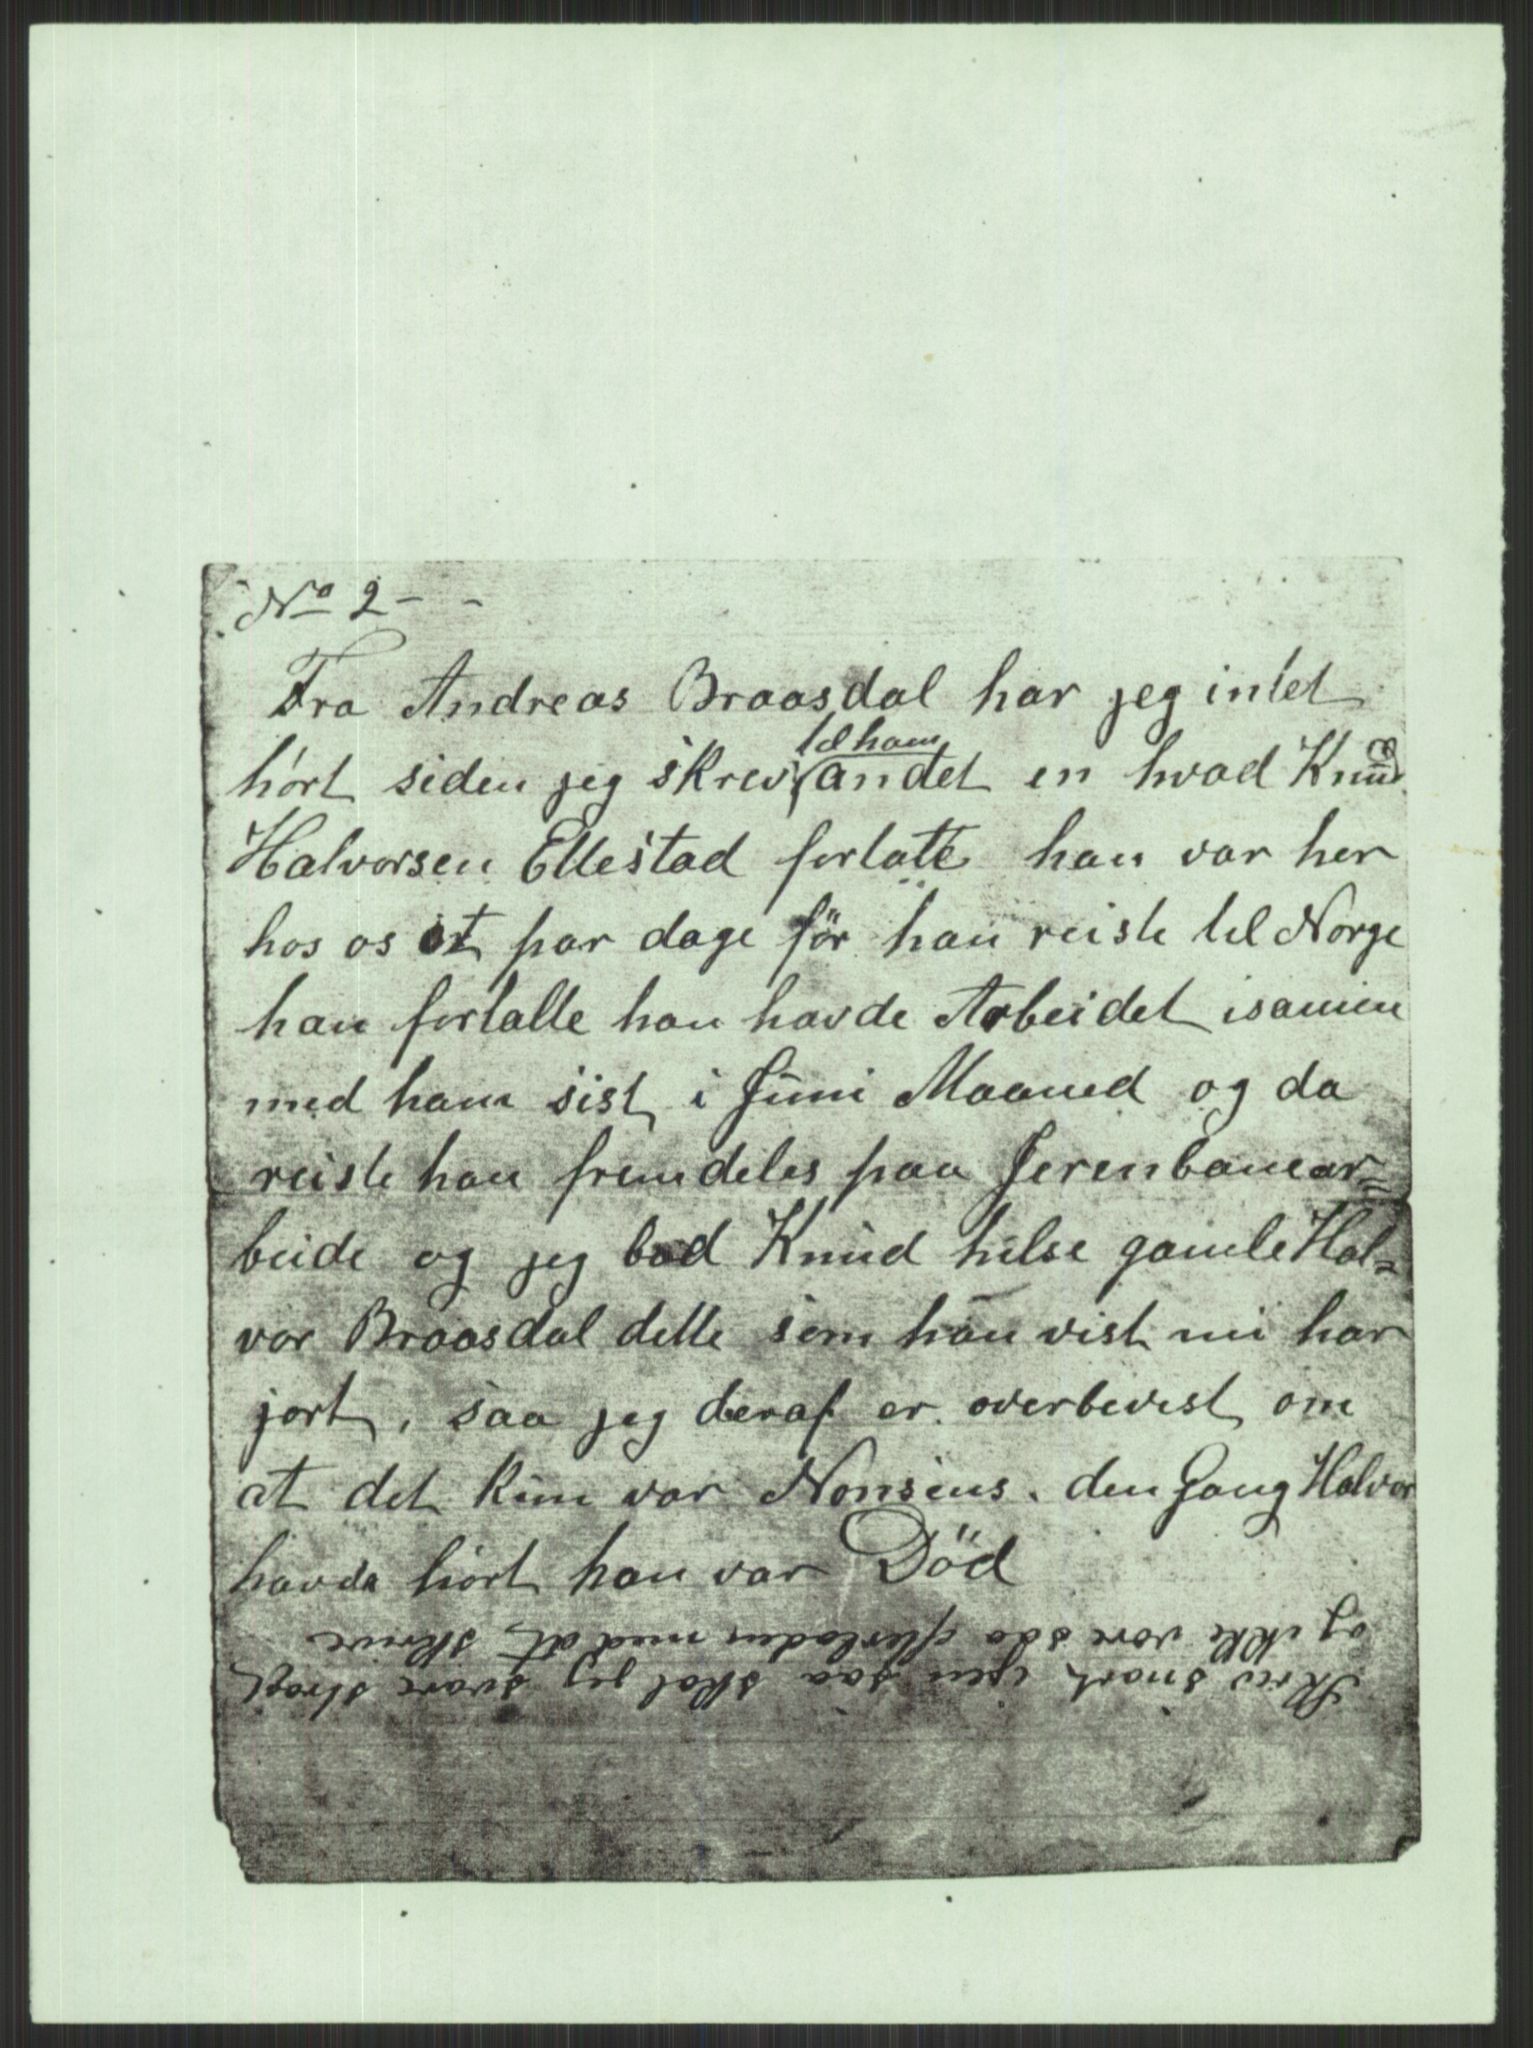 No 2 - -
Fra Andreas Braasdal har jeg intet
hört siden jeg skrev til ham andet en hvad Knud
Halvorsen Ellestad fortalte han var her
hos os et par dage för han reiste til Norge
han fortalte han havde Arbeidet isamen
med ham sist i Juni Maaned og da
reiste han fremdeles paa Jerenbanear=
beide og jeg bad Knud hilse gamle Hal=
vor Braasdal dette som han vist nu har
jort, saa jeg deraf er overbevist om
at det kun var Nonsens. den Gang Halvor
havde hört han var Död
Skriv snart igen saa skal jeg svare strax
og ikke vere saa efterladen med at skrive